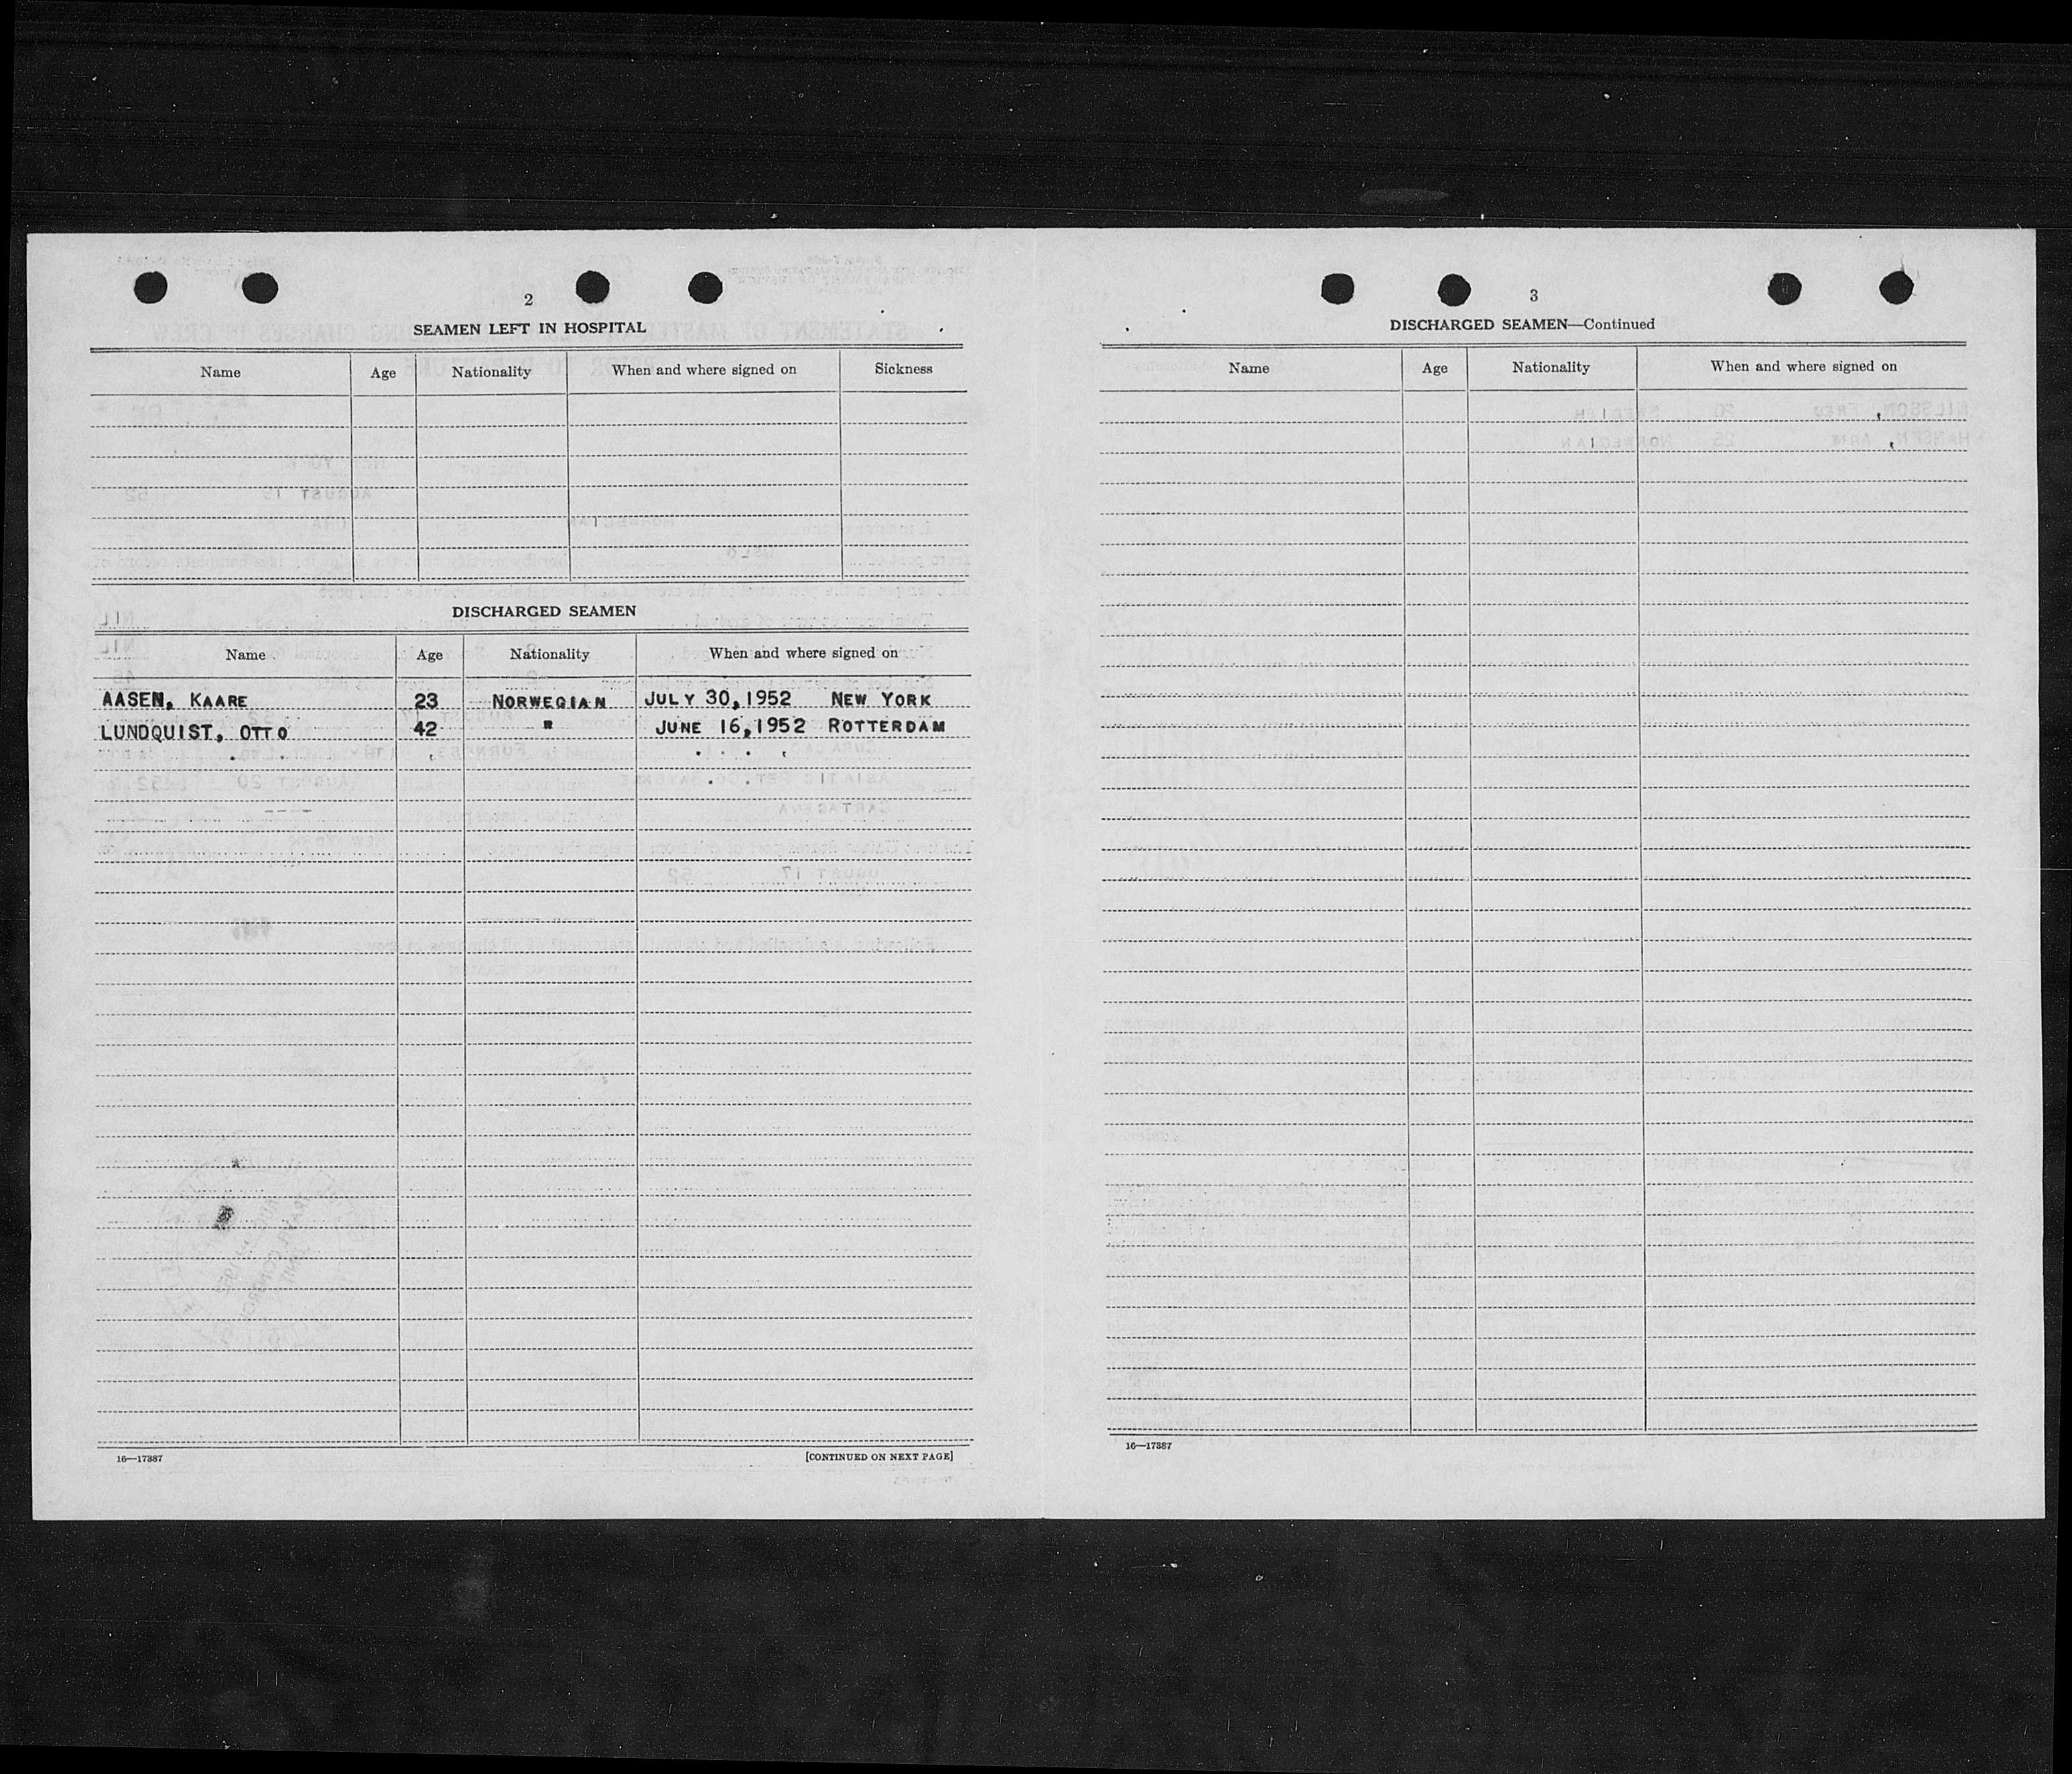 2
SEAMEN LEFT IN HOSPITAL
Name Age Nationality When and where signed on Sickness
DISCHARGED SEAMEN
Name Age Nationality When and where signed on
AASEN, KAARE 23 NORWEGIAN JULY 30, 1952 NEW YORK
LUNDQUIST, OTTO 42 " JUNE 16, 1952 ROTTERDAM
16—17387 [CONTINUED ON NEXT PAGE]
3
DISCHARGED SEAMEN—Continued
Name Age Nationality When and where signed on
16—17387